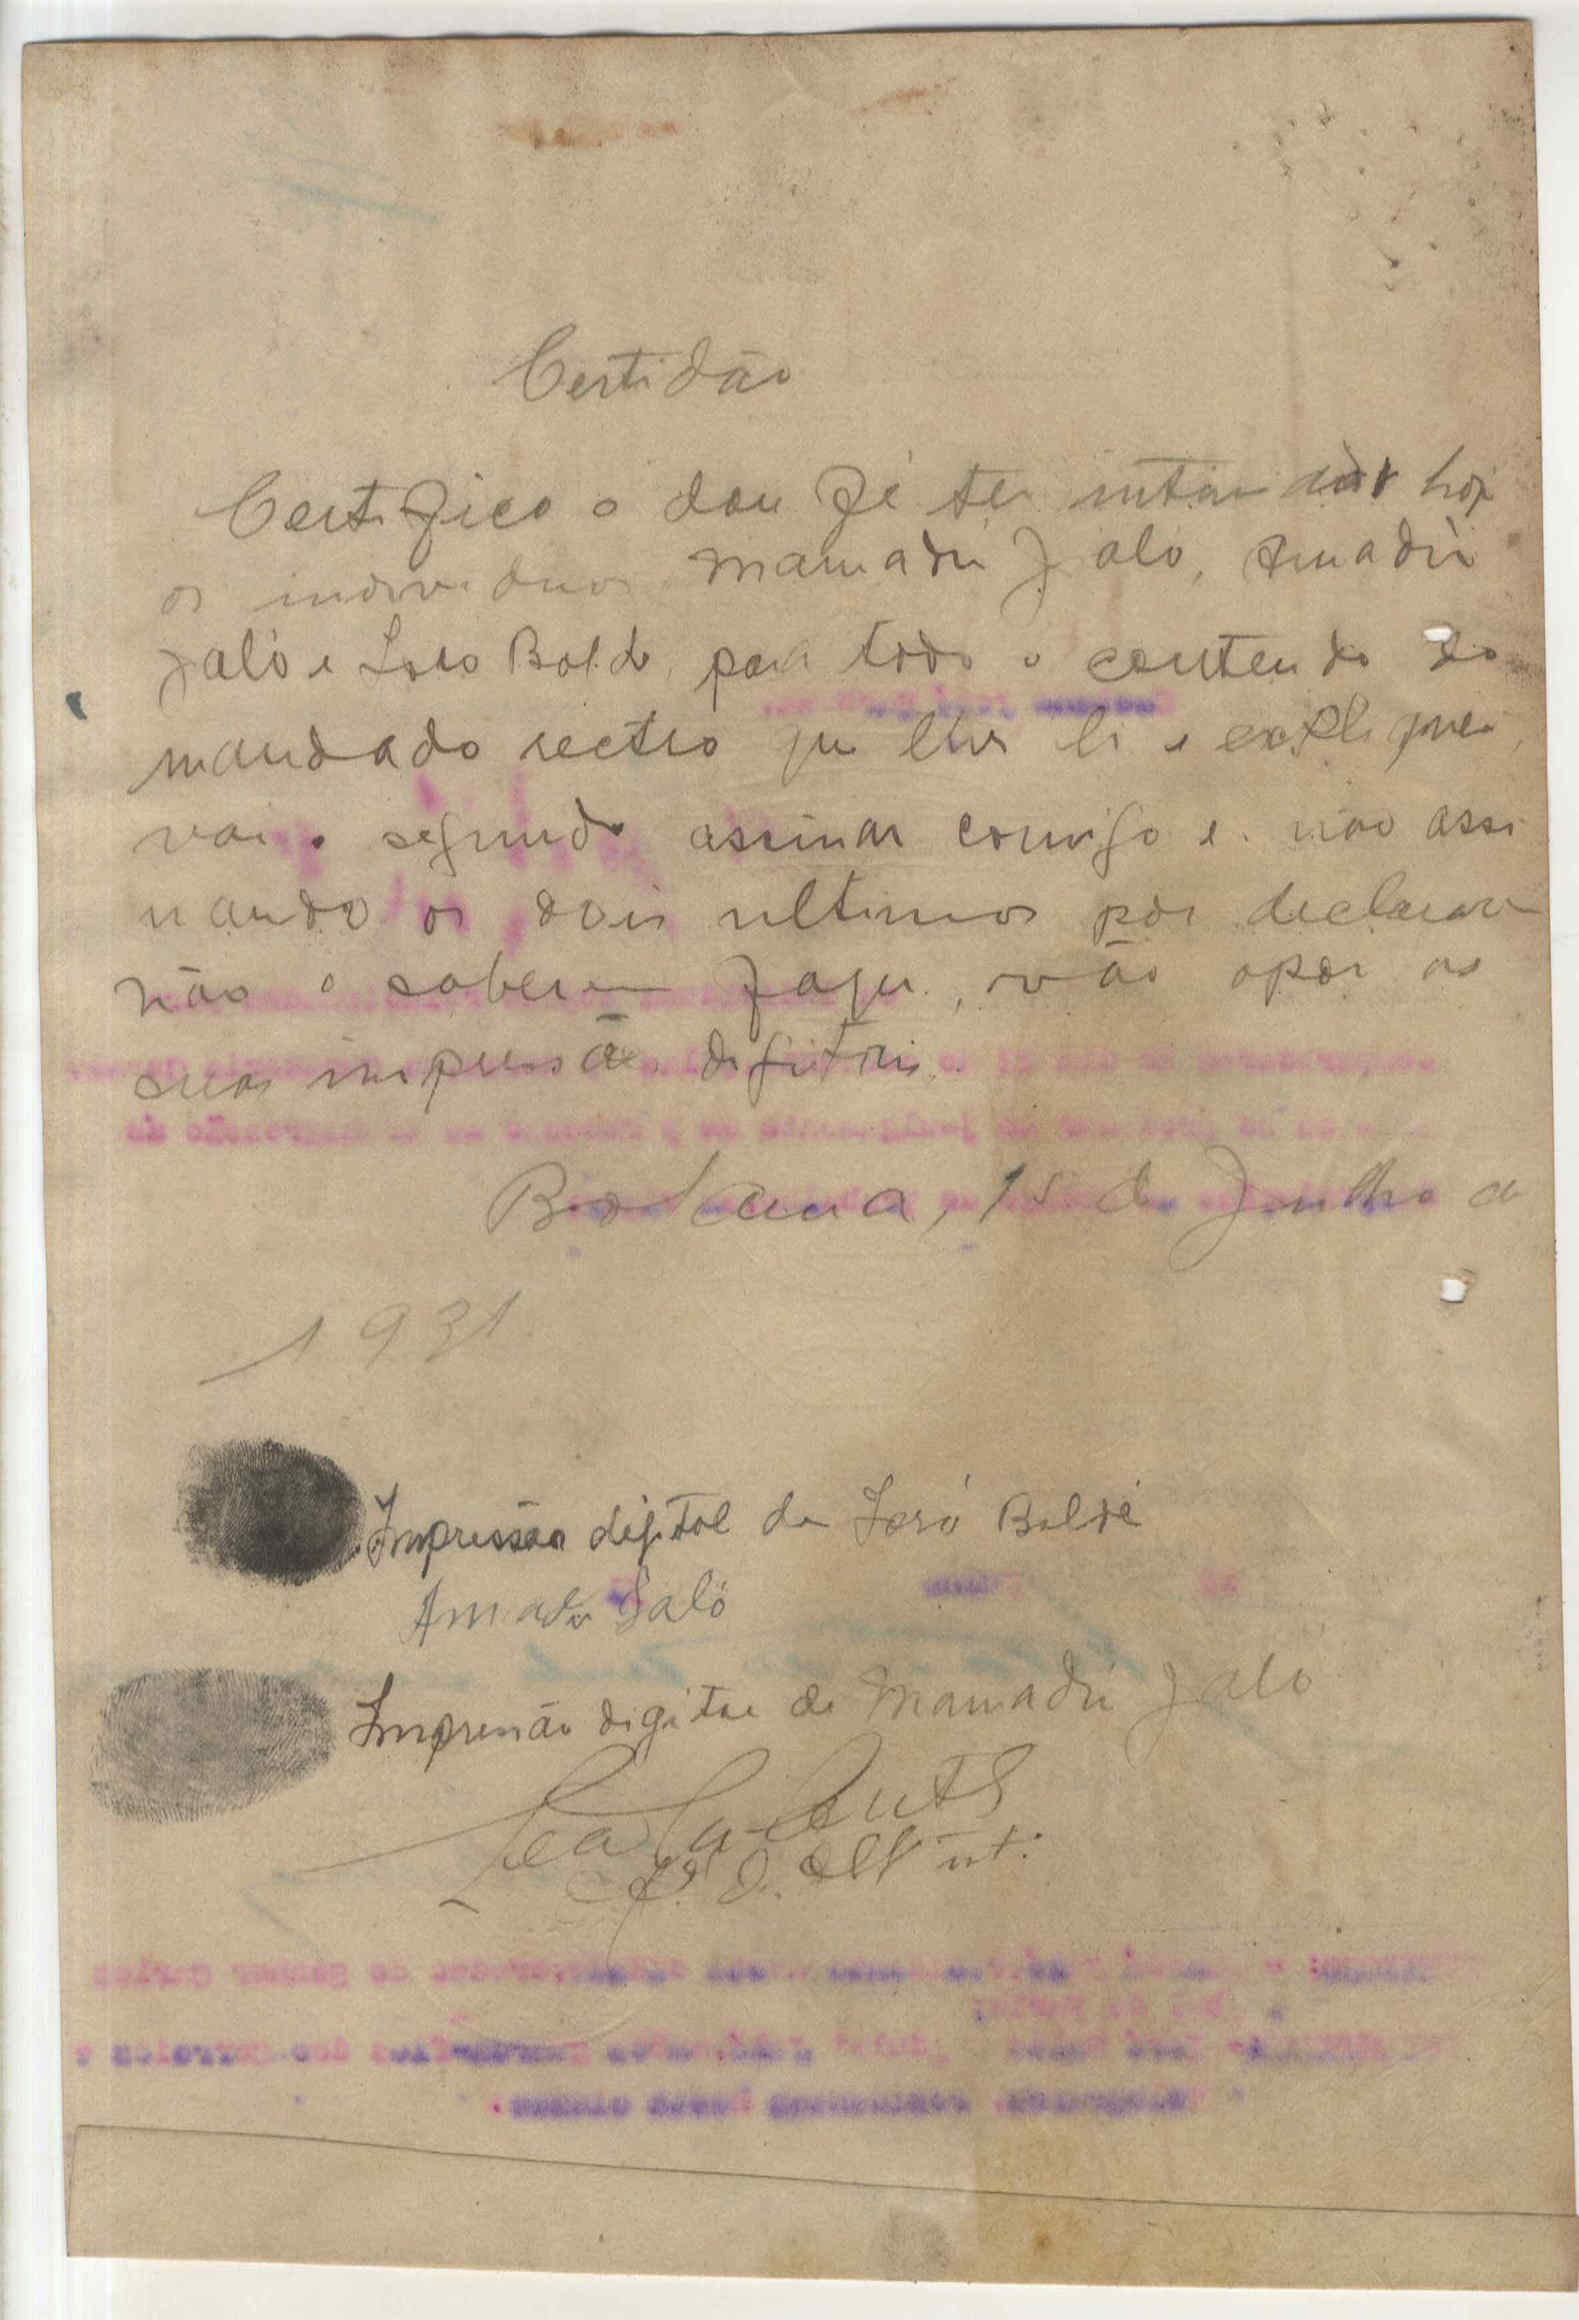 Certidão
Certifico e dou fé ter intimado hoje
os individuos Mamadú Jaló, Amadú
Jaló e Soro Baldé, para todo o conteudo do
mandado rectro que lhes li e expliquei,
vai o segundo assinar comigo e não assi
nando os dois ultimos por declararem
não o saberem fazer, vão apor as
suas impressões digitais.
Bolama, 15 de Julho de
1931
Impressão digital de Soró Baldé
Amadu Jaló
Impressão digital de Mamadú Jaló
int.